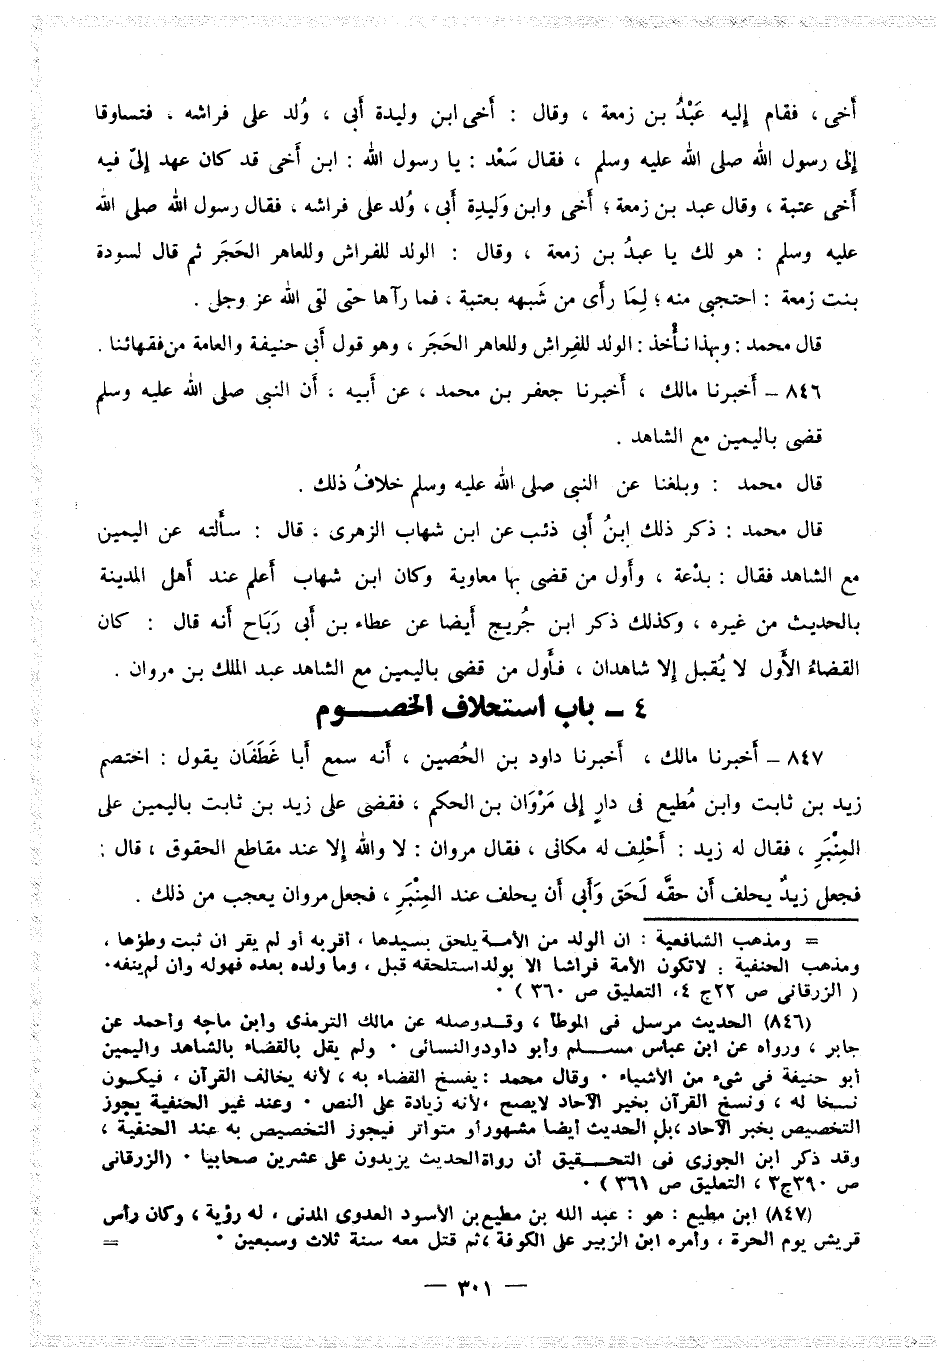 أَخى ، فقام إِليه عَبْدُ بن زمعة ، وقال : أَخى ابن وليدة أَبى ، وُلد على فراشه ، فتساوقا
إِلى رسول الله صلى الله عليه وسلم ، فقال سَعْد : يا رسول الله : ابن أَخى قد كان عهد إِلىّ فيه
أَخى عتبة ، وقال عبد بن زمعة ؛ أَخى وابن وَليدِة أَبى ، وُلد على فراشه ، فقال رسول الله صلى الله
عليه وسلم : هو لك يا عبدُ بن زمعة ، وقال : الولد للفراش وللعاهر الحَجَر ثم قال لسودة
بنت زمعة : احتجبى منه ؛ لِمَا رأَى من شَبهه بعتبة ، فما رآها حتى لقى الله عز وجل .
قال محمد : وبهذا نأْخذ : الولد للفِراش وللعاهر الحَجَر ، وهو قول أَبى حنيفة والعامة من فقهائنا .
٨٤٦ – أَخبرنا مالك ، أَخبرنا جعفر بن محمد ، عن أَبيه ، أَن النبى صلى الله عليه وسلم
قضى باليمين مع الشاهد .
قال محمد : وبلغنا عن النبى صلى الله عليه وسلم خلافُ ذلك .
قال محمد : ذكر ذلك ابنُ أَبى ذئب عن ابن شهاب الزهرى ، قال : سأَلته عن اليمين
مع الشاهد فقال : بدْعة ، وأَول من قضى بها معاوية وكان ابن شهاب أَعلم عند أَهل المدينة
بالحديث من غيره ، وكذلك ذكر ابن جُريج أَيضا عن عطاء بن أَبى رَبَاح أَنه قال : كان
القضاءُ الأَول لا يُقبل إِلا شاهدان ، فأَول من قضى باليمين مع الشاهد عبد الملك بن مروان .
٤ – باب استحلاف الخصوم
٨٤٧ – أَخبرنا مالك ، أَخبرنا داود بن الحُصين ، أَنه سمع أَبا غَطَفَان يقول : اختصم
زيد بن ثابت وابن مُطيع فى دارٍ إِلى مَرْوَان بن الحكم ، فقضى على زيد بن ثابت باليمين على
المِنْبَرِ ، فقال له زيد : أَحْلِف له مكانى ، فقال مروان : لا والله إِلا عند مقاطع الحقوق ، قال :
فجعل زيدٌ يحلف أَن حقَّه لَحَق وَأَبى أَن يحلف عند المِنْبَرِ ، فجعل مروان يعجب من ذلك .
= ومذهب الشافعية : ان الولد من الأمة يلحق بسيدها ، أقر به أو لم يقر ان ثبت وطؤها ،
ومذهب الحنفية : لا تكون الأمة فراشا الا بولد استلحقه قبل ، وما ولده بعده فهو له وان لم ينفه ٠
( الزرقانى ص ٢٢ ج ٤، التعليق ص ٣٦٠ ) ٠
(٨٤٦) الحديث مرسل فى الموطأ ، وقد وصله عن مالك الترمذى وابن ماجه وأحمد عن
جابر ، ورواه عن ابن عباس مسلم وأبو داود والنسائى ٠ ولم يقل بالقضاء بالشاهد واليمين
أبو حنيفة فى شىء من الأشياء ٠ وقال محمد : يفسخ القضاء به ، لأنه يخالف القرآن ، فيكون
نسخا له ، ونسخ القرآن بخبر الآحاد لا يصح ، لأنه زيادة على النص ٠ وعند غير الحنفية يجوز
التخصيص بخبر الآحاد ، بل الحديث أيضا مشهور أو متواتر فيجوز التخصيص به عند الحنفية ،
وقد ذكر ابن الجوزى فى التحقيق أن رواة الحديث يزيدون على عشرين صحابيا ٠ (الزرقانى
ص ٣٩٠ ج ٣ ، التعليق ص ٣٦١ ) ٠
(٨٤٧) ابن مطيع : هو : عبد الله بن مطيع بن الأسود العدوى المدنى ، له رؤية ، وكان رأس
قريش يوم الحرة ، وأمره ابن الزبير على الكوفة ، ثم قتل معه سنة ثلاث وسبعين ٠ =
— ٣٠١ —